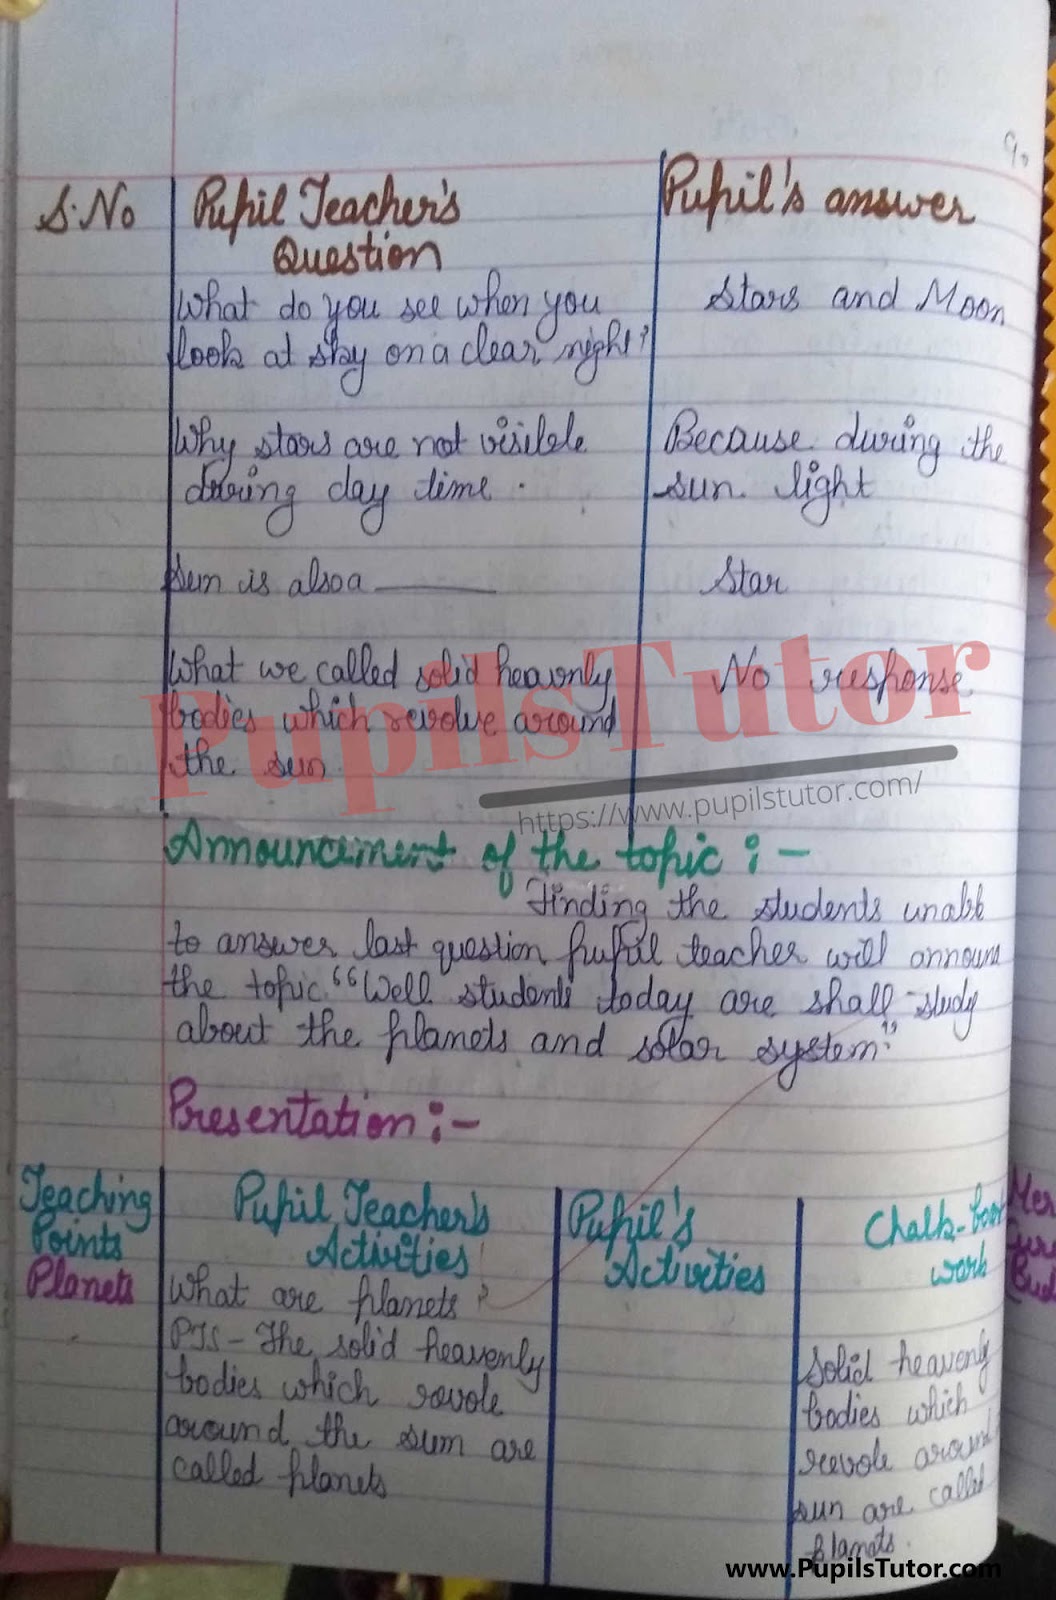 90
S.No Pupil Teacher's Pupil's answer
Question
What do you see when you Stars and Moon
look at sky on a clear night?
Why stars are not visible Because during the
during day time. sun light
Sun is also a ______ Star
What we called solid heavenly No response
bodies which revolve around
the sun
PupilsTutor
https://www.pupilstutor.com/
Announcement of the topic :-
Finding the students unable
to answer last question, pupil teacher will announ
the topic "Well students today are shall study
about the planets and solar system"
Presentation :-
Teaching Pupil Teacher's Pupil's Chalk-boar
Points Activities Activities work
Planets
What are planets?
PTS - The solid heavenly
bodies which revole
around the sum are
called planets
Solid heavenly
bodies which
revole around
sun are called
planets.
www.PupilsTutor.com